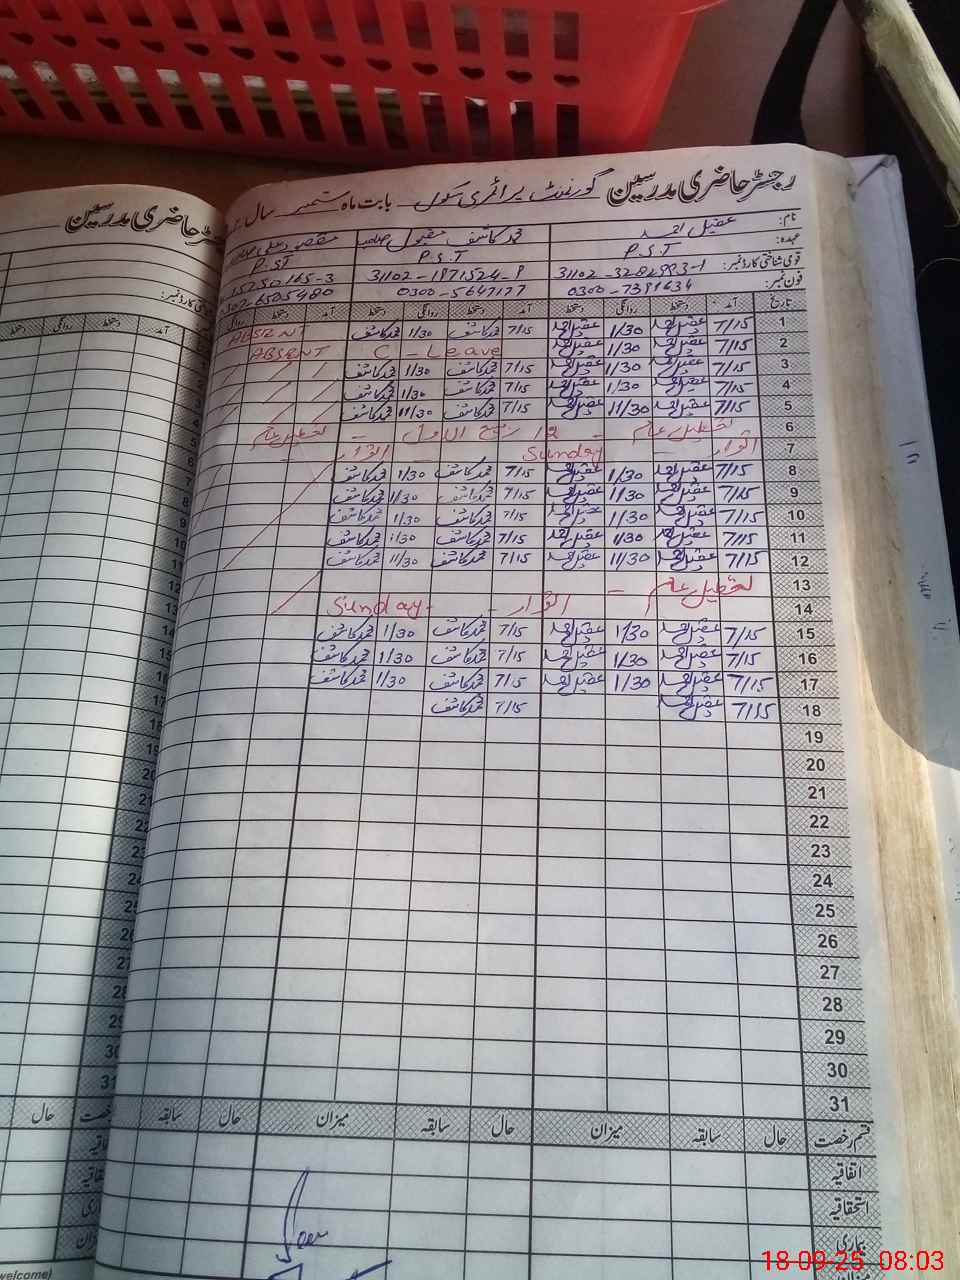 رجسٹر حاضری مدرسین گورنمنٹ پرائمری سکول بابت ماہ ستمبر سال
نام: عقیل احمد محمد کاشف مقبول صاحب
عہدہ: P.S.T P.S.T P.ST
قومی شناختی کارڈ نمبر: 31102-3282993-1 31102-1871524-9
فون نمبر: 0300-7391634 0300-5647177 0302-6505480
تاریخ آمد دستخط روانگی دستخط آمد دستخط روانگی دستخط آمد دستخط روانگی
1 7/15 عقیل احمد 1/30 عقیل احمد 7/15 محمد کاشف 1/30 محمد کاشف ABSENT
2 7/15 عقیل احمد 1/30 عقیل احمد C-Leave ABSENT
3 7/15 عقیل احمد 1/30 عقیل احمد 7/15 محمد کاشف 1/30 محمد کاشف
4 7/15 عقیل احمد 1/30 عقیل احمد 7/15 محمد کاشف 1/30 محمد کاشف
5 7/15 عقیل احمد 11/30 عقیل احمد 7/15 محمد کاشف 11/30 محمد کاشف
6 تعطیل عام - 12 ربیع الاول - تعطیل عام
7 اتوار Sunday اتوار
8 7/15 عقیل احمد 1/30 عقیل احمد 7/15 محمد کاشف 1/30 محمد کاشف
9 7/15 عقیل احمد 1/30 عقیل احمد 7/15 محمد کاشف 1/30 محمد کاشف
10 7/15 عقیل احمد 1/30 عقیل احمد 7/15 محمد کاشف 1/30 محمد کاشف
11 7/15 عقیل احمد 1/30 عقیل احمد 7/15 محمد کاشف 1/30 محمد کاشف
12 7/15 عقیل احمد 11/30 عقیل احمد 7/15 محمد کاشف 11/30 محمد کاشف
13 تعطیل عام -
14 اتوار - Sunday-
15 7/15 عقیل احمد 1/30 عقیل احمد 7/15 محمد کاشف 1/30 محمد کاشف
16 7/15 عقیل احمد 1/30 عقیل احمد 7/15 محمد کاشف 1/30 محمد کاشف
17 7/15 عقیل احمد 1/30 عقیل احمد 7/15 محمد کاشف 1/30 محمد کاشف
18 7/15 عقیل احمد 7/15 محمد کاشف
19
20
21
22
23
24
25
26
27
28
29
30
31
قسم رخصت حال سابقہ میزان حال سابقہ میزان حال سابقہ
اتفاقیہ
استحقاقیہ
بیماری
welcome)
18-09-25 08:03